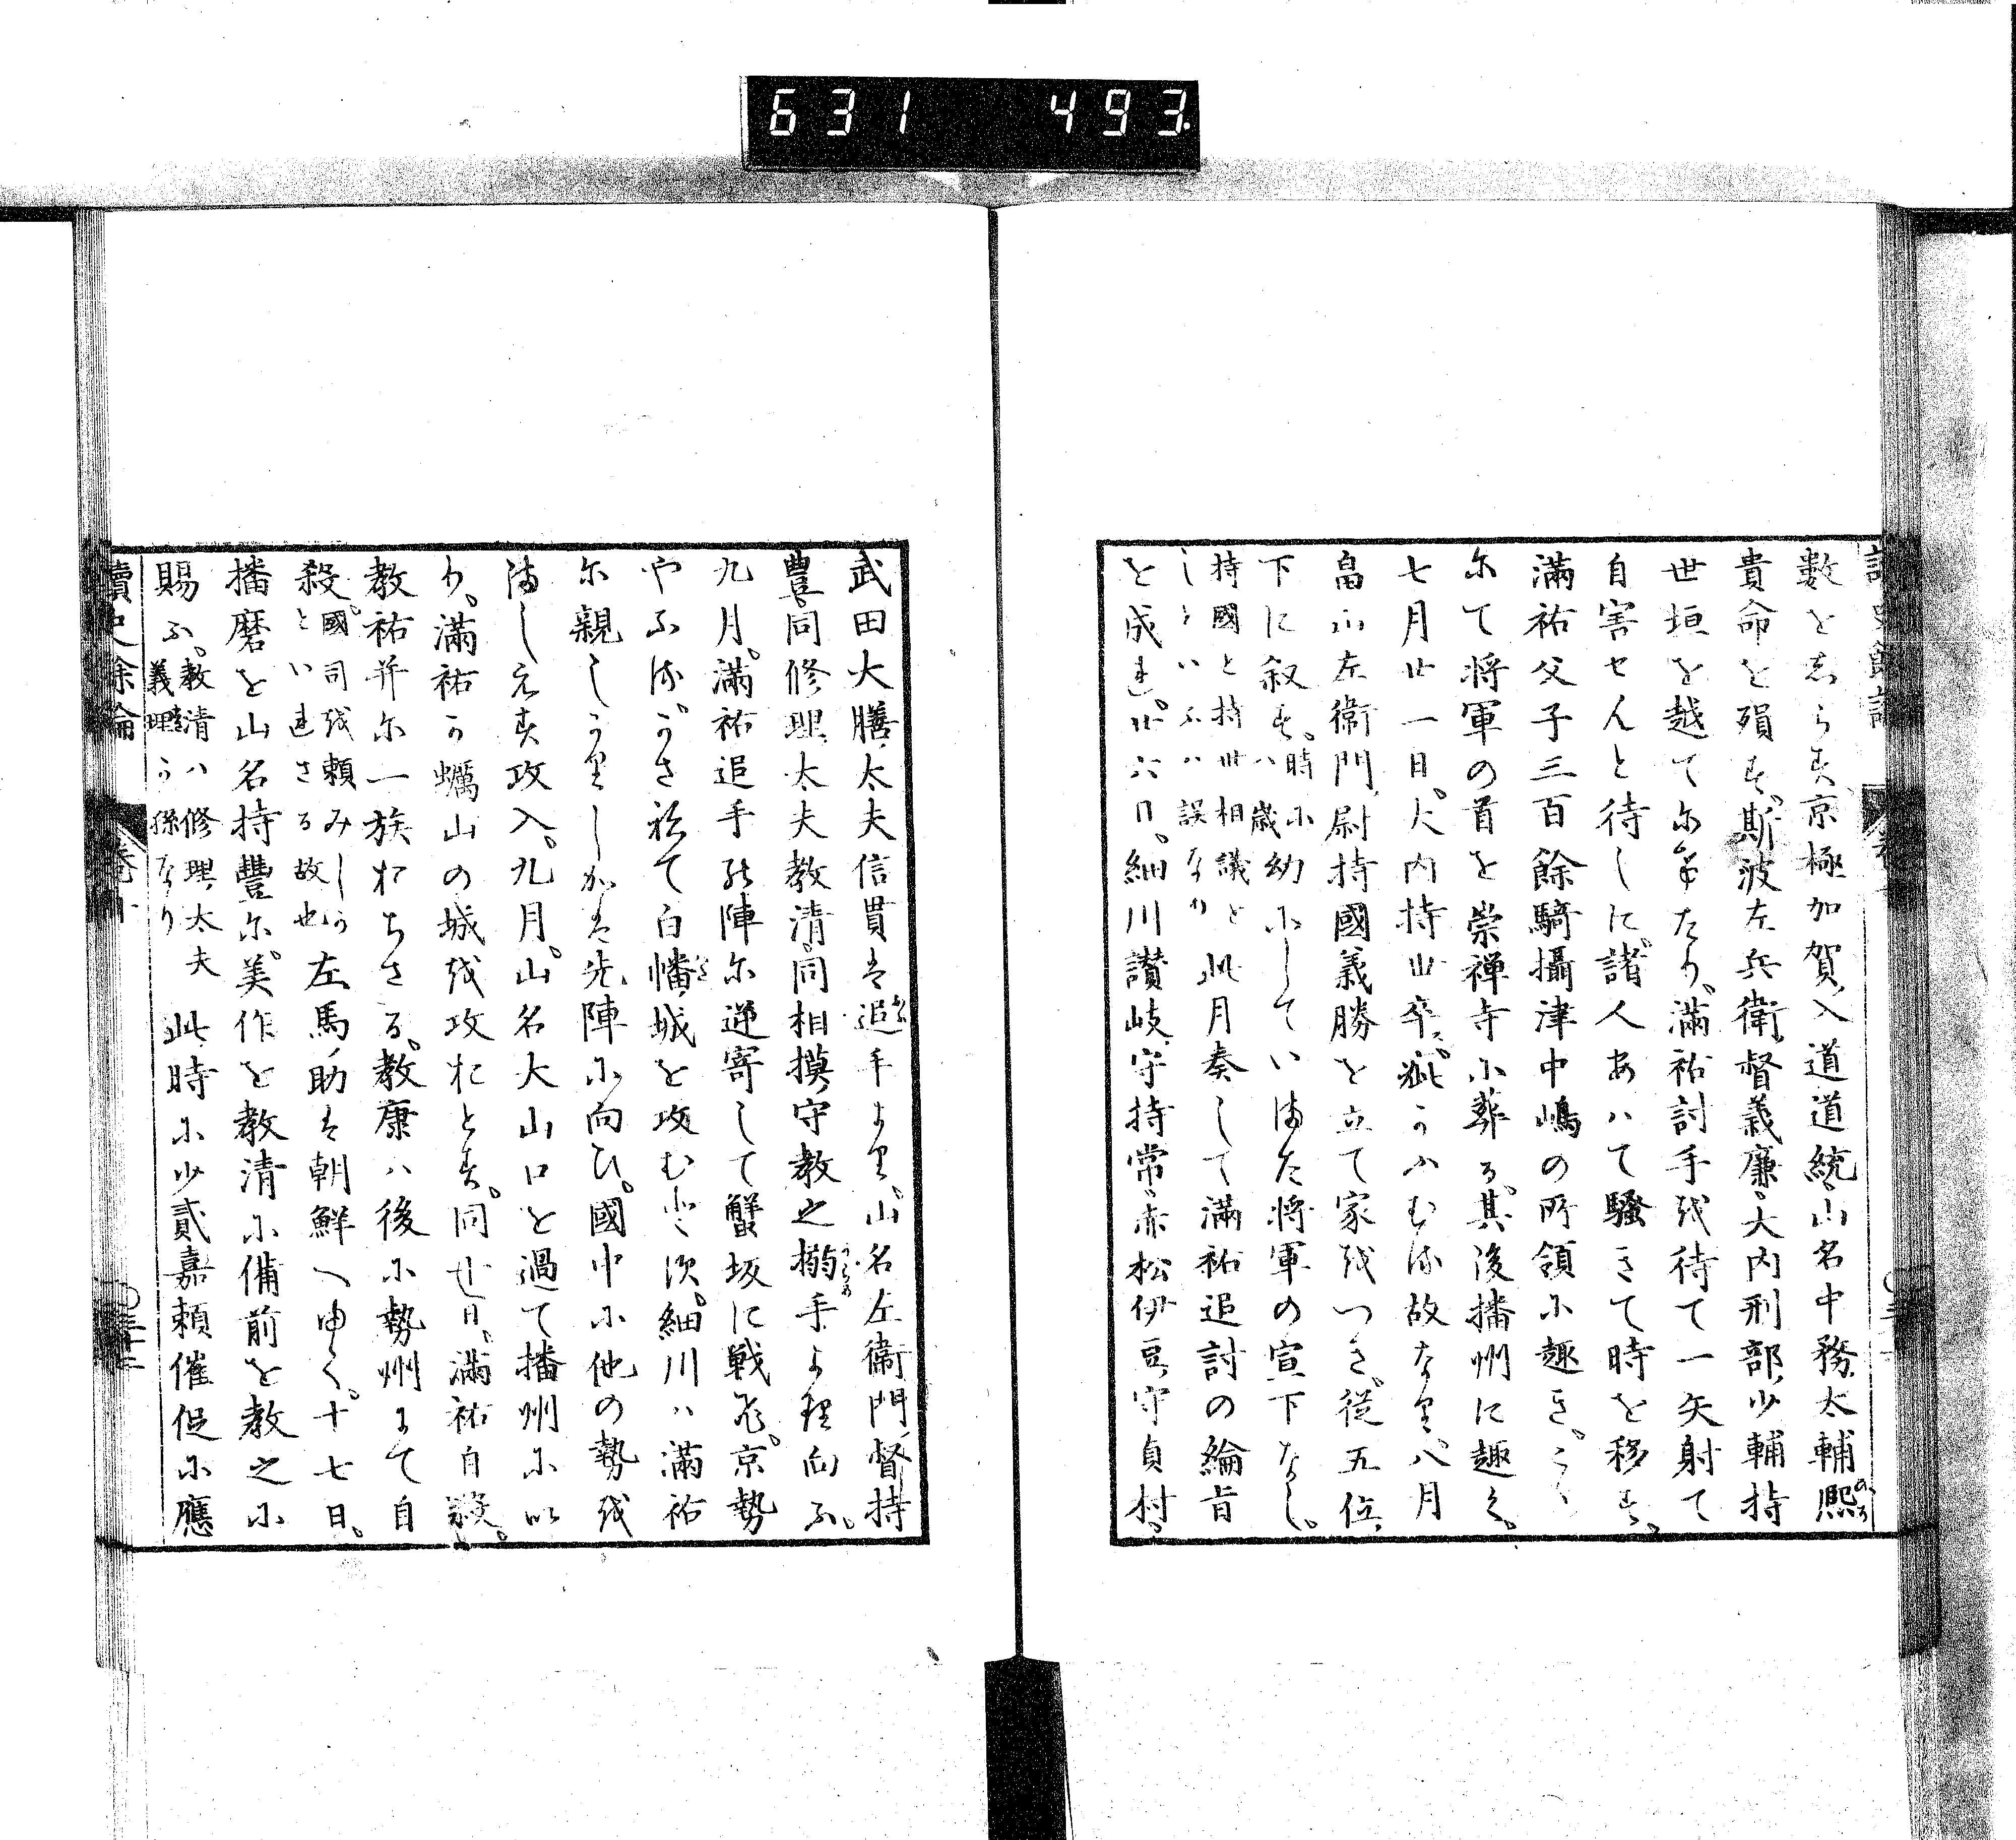 631 493
數を志らす京極加賀入道道統山名中務太輔熈
貴命を殞す斯波左兵衛督義廉大内刑部少輔持
世垣を越てにけたり滿祐討手を待て一矢射て
自害せんと待しに諸人あハて騷きて時を移す
滿祐父子三百餘騎攝津中嶋の所領に趣き
にて將軍の首を崇禅寺に葬る其後播州に趣く
七月廿一日大内持世卒疵かふむる故なり八月
畠山左衛門尉持國義勝を立て家をつき從五位
下に叙す時に八歳幼にしていまた将軍の宣下なし
持國と持世相議と
しといふハ誤なり
此月奏して滿祐追討の綸旨
を成さる廿六日細川讃岐守持常赤松伊豆守貞村
武田大膳太夫信貫は追手より山名左衛門督持
豊同修理太夫教清同相摸守教之搦手より向ふ
九月滿祐追手の陣に逆寄して蟹坂に戰ふ京勢
やふる かさ祢て白幡城を攻む 細川ハ滿祐
に親しかりしかは先陣に向ひ國中に他の勢を
ましえす攻入九月山名大山口を過て播州に以
り滿祐か蠣山の城を攻おとす同廿日滿祐自殺
教祐并に一族おちさる教康ハ後に勢州にて自
殺國司を頼みしか
といれさる故也
左馬助は朝鮮へゆく十七日
播磨を山名持豐に美作を教清に備前を教之に
賜ふ教清ハ修理太夫
義理か孫なり
此時に少貳嘉頼催促に應
讀史餘論